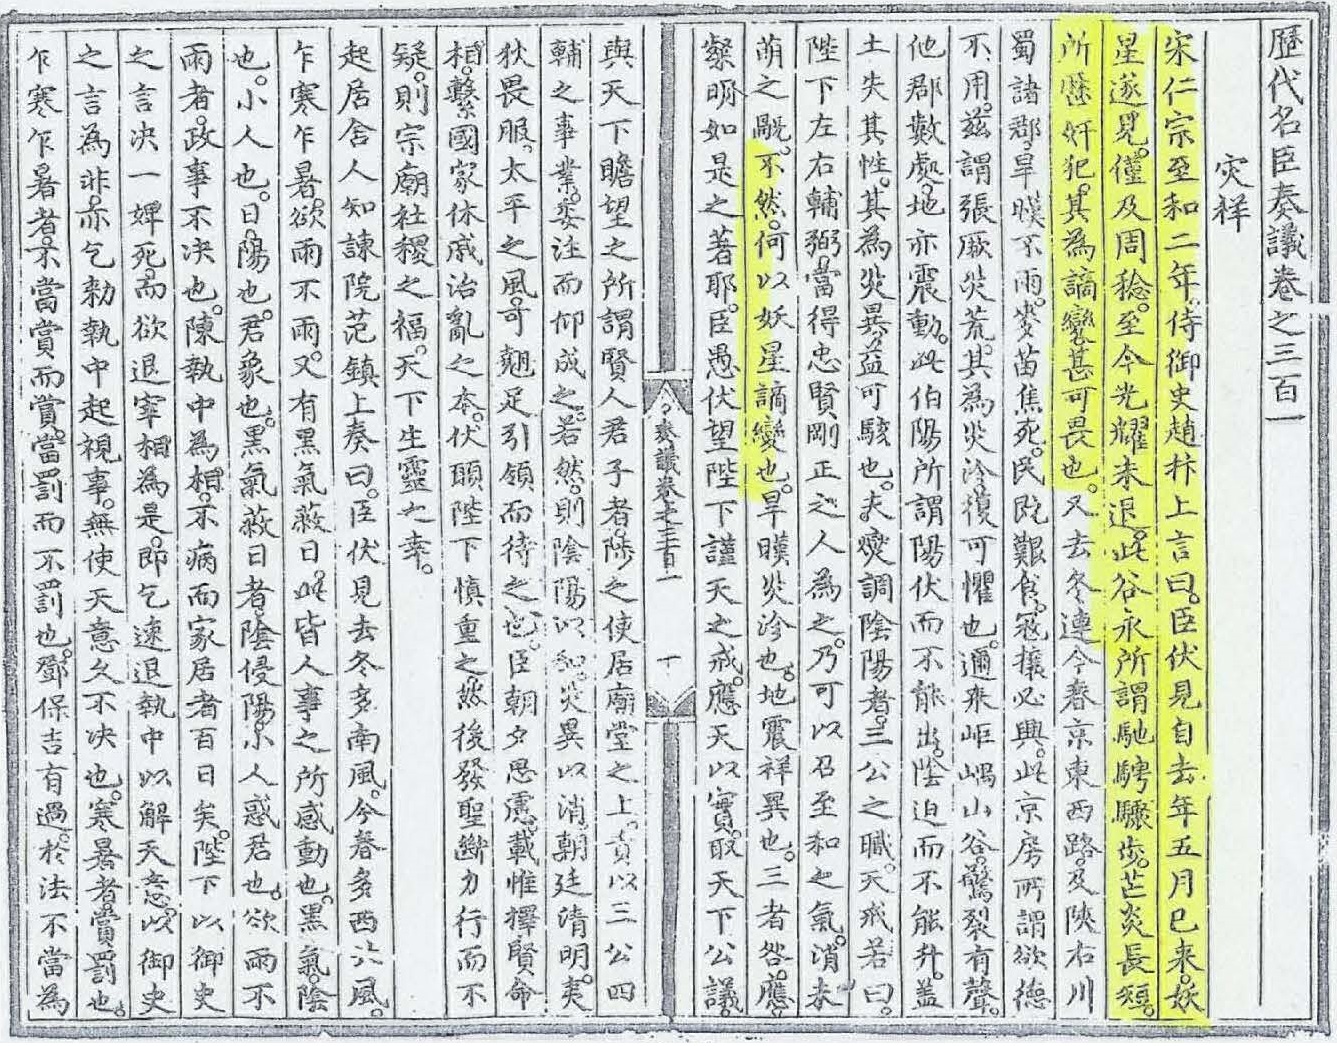 歷代名臣奏議卷之三百一
灾祥
宋仁宗至和二年侍御史趙抃上言曰。臣伏見自去年五月已来。妖
星遂見。僅及周稔。至今光耀未退。此谷永所謂馳騁驟步。芒炎長短。
所歷奸犯。其為謫變甚可畏也。又去冬連今春京東西路。及陝右川
蜀諸郡。旱暵不雨。麥苗焦死。民既艱食。寇攘必興。此京房所謂欲德
不用。兹謂張厥灾荒。其為灾沴。復可懼也。邇来岠嵎山谷。驚裂有聲。
他郡數處。地亦震動。此伯陽所謂陽伏而不能出。陰迫而不能升。蓋
土失其性。其為灾異。益可駭也。夫燮調陰陽者。三公之職。天戒若曰。
陛下左右輔弼。當得忠賢剛正之人為之。乃可以召至和之氣。消未
萌之眚。不然。何以妖星謫變也。旱暵灾沴也。地震祥異也。三者咎應。
粲明如是之著耶。臣愚伏望陛下謹天之戒。應天以實。取天下公議。
奏議卷之三百一
與天下瞻望之所謂賢人君子者。陟之使居廟堂之上。責以三公四
輔之事業。委注而仰成之。若然。則陰陽以和。灾異以消。朝廷清明。夷
狄畏服。太平之風。可翹足引領而待之也。臣朝夕思慮。載惟擇賢命
相。繫國家休戚治亂之本。伏願陛下慎重之。然後發聖斷力行而不
疑。則宗廟社稷之福。天下生靈之幸。
起居舍人知諫院范鎮上奏曰。臣伏見去冬多南風。今春多西北風。
乍寒乍暑。欲雨不雨。又有黑氣蔽日。此皆人事之所感動也。黑氣。陰
也。小人也。日。陽也。君象也。黑氣蔽日者。陰侵陽。小人惑君也。欲雨不
雨者。政事不决也。陳執中為相。不病而家居者百日矣。陛下以御史
之言决一婢死。而欲退宰相為是。即乞速退執中以解天意。以御史
之言為非。亦乞勑執中起視事。無使天意久不决也。寒暑者賞罰也。
乍寒乍暑者。不當賞而賞。當罰而不罰也。鄧保吉有過。於法不當為